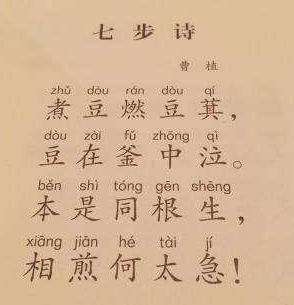 七步诗
曹植
zhǔ dòu rán dòu qí
煮豆燃豆萁，
dòu zài fǔ zhōng qì
豆在釜中泣。
běn shì tóng gēn shēng
本是同根生，
xiāng jiān hé tài jí
相煎何太急！